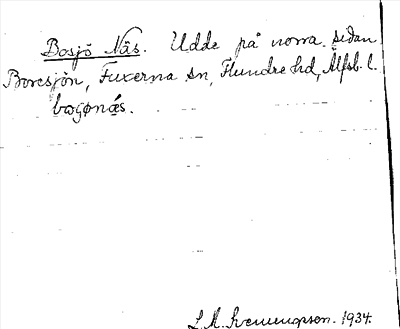 Bosjö Näs. Udde på norra sidan
Boresjön, Fuxerna sn, Flundre hd, Älfsb. l.
L. M. 1934.